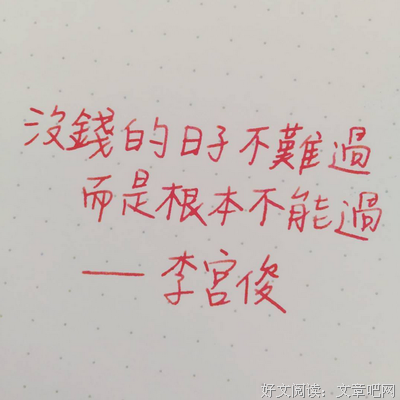 沒錢的日子不難過
而是根本不能過
——李宮俊
好文阅读：文章吧网